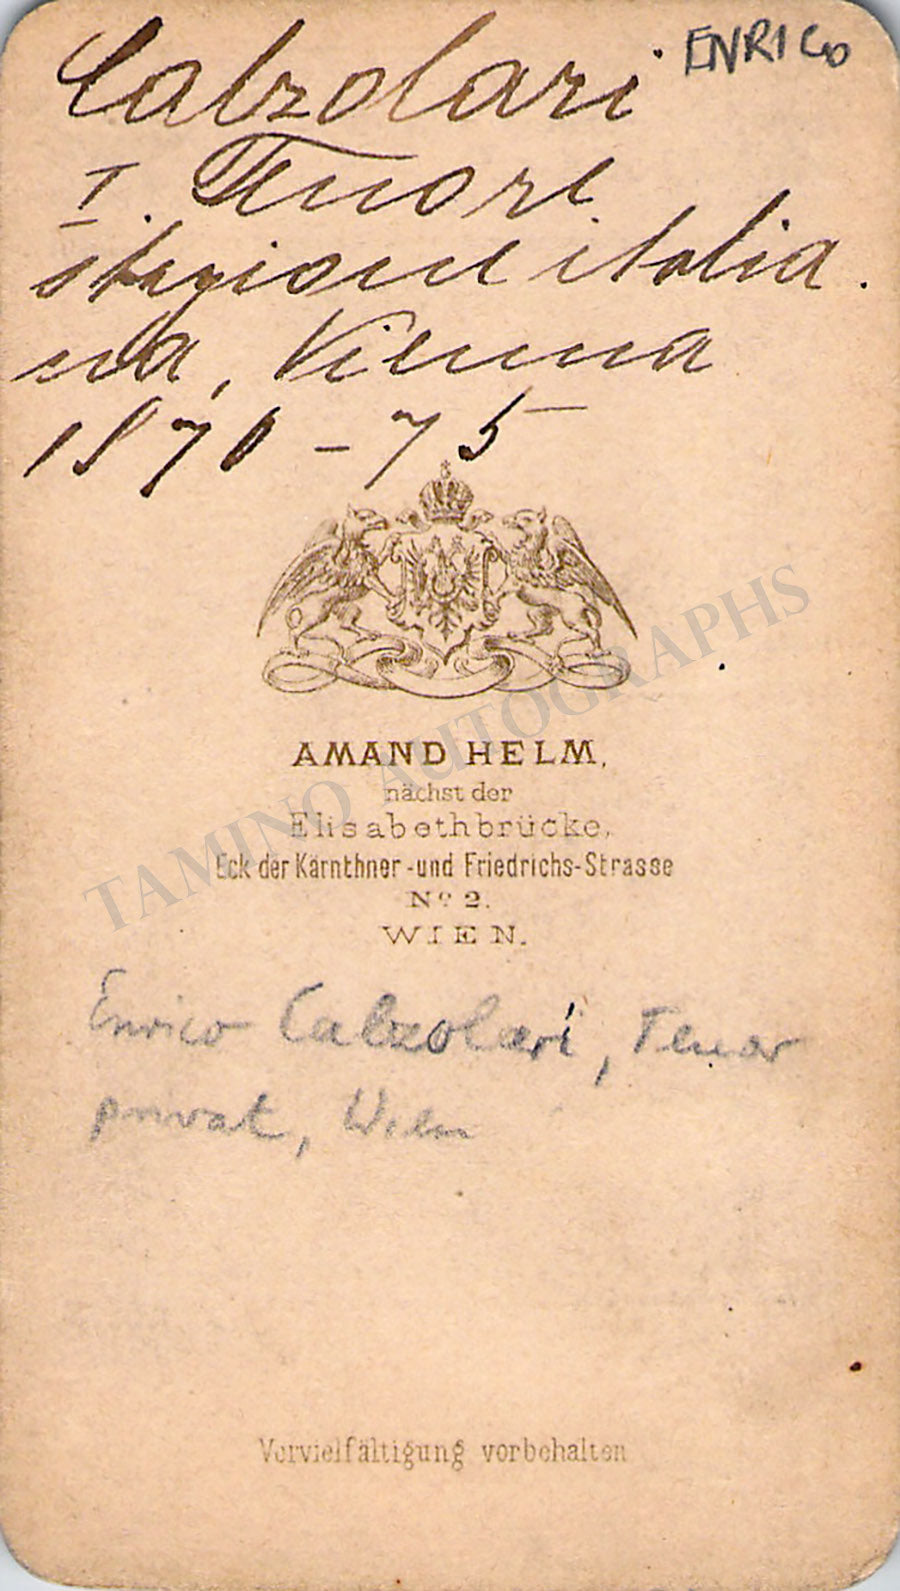 Calzolari ENRICO
I. Tenore
stagione italia.
na, Vienna
1870-75
AMAND HELM,
nächst der
Elisabethbrücke,
Eck der Kärnthner-und Friedrichs-Strasse
No 2.
WIEN.
TAMINO AUTOGRAPHS
Enrico Calzolari, Tenor
privat, Wien
Vervielfältigung vorbehalten